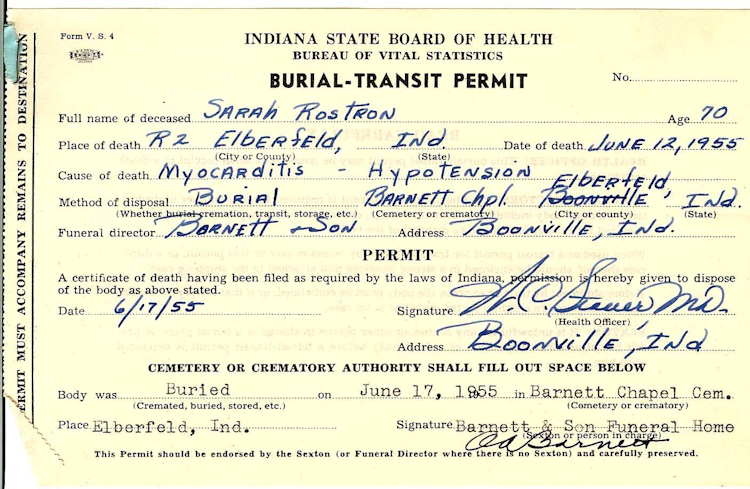 Form V. S. 4
INDIANA STATE BOARD OF HEALTH
BUREAU OF VITAL STATISTICS
BURIAL-TRANSIT PERMIT
No.
Full name of deceased SARAH ROSTRON Age 70
Place of death R2 Elberfeld, Ind. Date of death JUNE 12, 1955
(City or County) (State)
Cause of death Myocarditis - Hypotension
Elberfeld,
Method of disposal Burial Barnett Chpl. Boonville, Ind.
(Whether burial cremation, transit, storage, etc.) (Cemetery or crematory) (City or county) (State)
Funeral director Barnett & Son Address Boonville, Ind.
PERMIT
A certificate of death having been filed as required by the laws of Indiana, permission is hereby given to dispose
of the body as above stated.
Date 6/17/55 Signature M.D.
(Health Officer)
Address Boonville, Ind
CEMETERY OR CREMATORY AUTHORITY SHALL FILL OUT SPACE BELOW
Body was Buried on June 17, 1955 in Barnett Chapel Cem.
(Cremated, buried, stored, etc.) (Cemetery or crematory)
Place Elberfeld, Ind. Signature Barnett & Son Funeral Home
(Sexton or person in charge)
Barnett
This Permit should be endorsed by the Sexton (or Funeral Director where there is no Sexton) and carefully preserved.
PERMIT MUST ACCOMPANY REMAINS TO DESTINATION